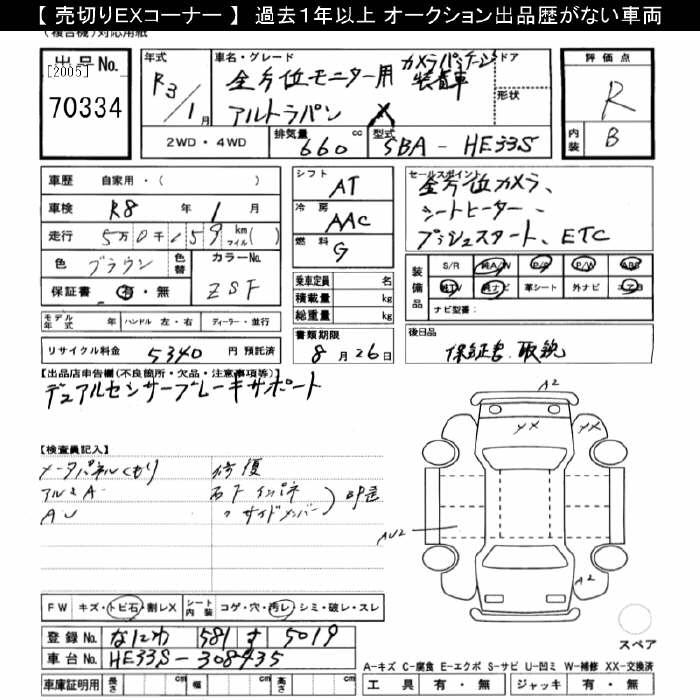 【 売切りEXコーナー 】 過去1年以上 オークション出品歴がない車両
(複合機)対応用紙
出品No.
[2005]
70334
年式
R3/1月
車名・グレード
全方位モニター用 カメラパッケージ装着車
アルトラパン X
ドア
形状
2WD・4WD
排気量 660 cc
型式 5BA - HE33S
評価点
R
内装 B
車歴 自家用・( )
車検 R8 年 1 月
走行 5万0千159 kmマイル( )
色 ブラウン
色替
カラーNo. ZSF
保証書 有・無
モデル年式 年
ハンドル 左・右
ディーラー・並行
リサイクル料金 5340 円 預託済
シフト AT
冷房 AAC
燃料 G
乗車定員 名
積載量 kg
総重量 kg
書類期限
8月26日
セールスポイント
全方位カメラ、
シートヒーター、
プッシュスタート、ETC
装備品
S/R 純A/W P/S P/W ABS
純TV 純ナビ 革シート 外ナビ エアB
ナビ型番:
後日品
保証書、取説
【出品店申告欄(不良箇所・欠品・注意事項等)】
デュアルセンサーブレーキサポート
【検査員記入】
メータパネルくもり
アルミA
AU
修復
右F インパネ
〃 サイドメンバー
凹歪
A2
XX
XX
AU2
A2
スペア
FW キズ・トビ石・割レX
シート内装 コゲ・穴・汚レ・シミ・破レ・スレ
登録No. なにわ 581 す 5019
車台No. HE33S-308435
車庫証明用 長さ cm 幅 cm 高さ cm
A-キズ C-腐食 E-エクボ S-サビ U-凹ミ W-補修 XX-交換済
工具 有・無 ジャッキ 有・無